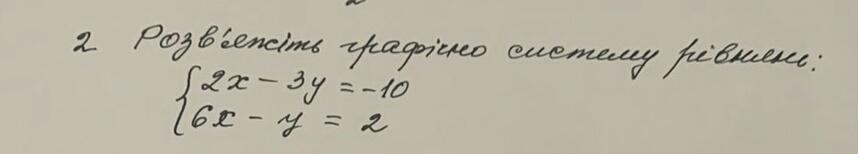 2 Розв'яжіть графічно систему рівнянь:
{2x - 3y = -10
{6x - y = 2